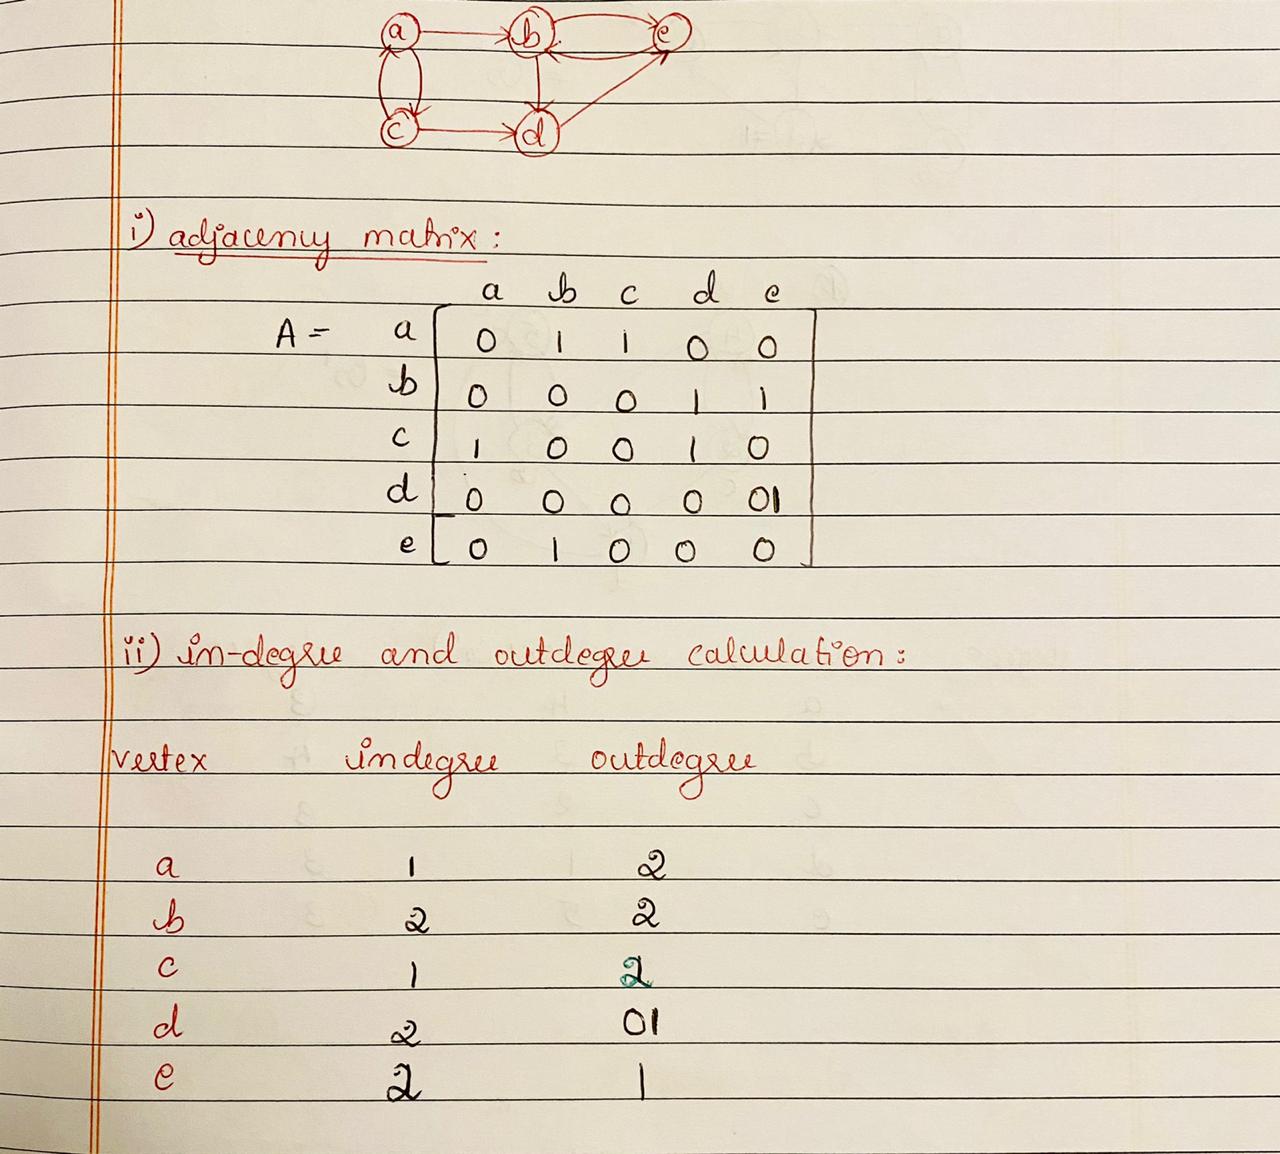 a b e
c d
i) adjacency matrix :
a b c d e
A = a 0 1 1 0 0
b 0 0 0 1 1
c 1 0 0 1 0
d 0 0 0 0 01
e 0 1 0 0 0
ii) in-degree and outdegree calculation :
vertex indegree outdegree
a 1 2
b 2 2
c 1 2
d 2 01
e 2 1